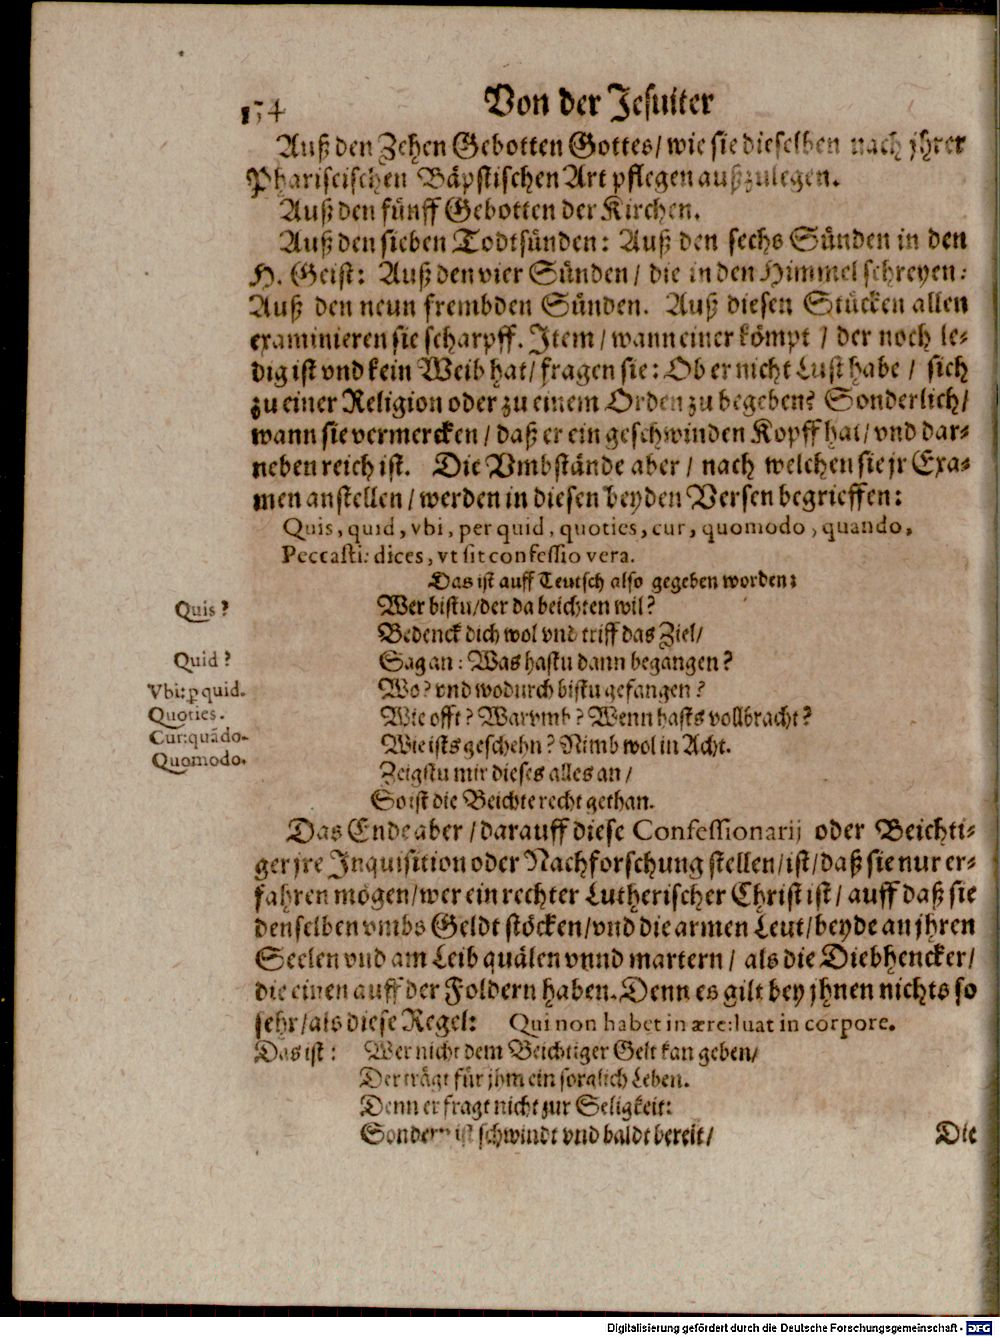 174 Von der Jesuiter
Auß den Zehen Gebotten Gottes / wie sie dieselben nach jhrer
Phariseischen Bäpstischen Art pflegen außzulegen.
Auß den fünff Gebotten der Kirchen.
Auß den sieben Todtsünden: Auß den sechs Sünden in den
H. Geist: Auß den vier Sünden / die in den Himmel schreyen:
Auß den neun frembden Sünden. Auß diesen Stücken allen
examinieren sie scharpff. Item / wann einer kömpt / der noch le-
dig ist vnd kein Weib hat / fragen sie: Ob er nicht Lust habe / sich
zu einer Religion oder zu einem Orden zu begeben? Sonderlich /
wann sie vermercken / daß er ein geschwinden Kopff hat / vnd dar-
neben reich ist. Die Vmbstände aber / nach welchen sie jr Exa-
men anstellen / werden in diesen beyden Versen begrieffen:
Quis, quid, vbi, per quid, quoties, cur, quomodo, quando,
Peccasti: dices, vt sit confessio vera.
Das ist auff Teutsch also gegeben worden:
Quis? Wer bistu / der da beichten wil?
Bedenck dich wol vnd triff das Ziel /
Quid? Sag an: Was hastu dann begangen?
Vbi: ꝑ quid. Wo? vnd wodurch bistu gefangen?
Quoties. Wie offt? Warvmb? Wenn hasts vollbracht?
Cur: quãdo. Wie ists geschehn? Nimb wol in Acht.
Quomodo. Zeigstu mir dieses alles an /
So ist die Beichte recht gethan.
Das Ende aber / darauff diese Confessionarij oder Beichti-
ger jre Inquisition oder Nachforschung stellen / ist / daß sie nur er-
fahren mögen / wer ein rechter Lutherischer Christ ist / auff daß sie
denselben vmbs Geldt stöcken / vnd die armen Leut / beyde an jhren
Seelen vnd am Leib quälen vnnd martern / als die Diebhencker /
die einen auff der Foldern haben. Denn es gilt bey jhnen nichts so
sehr / als diese Regel: Qui non habet in ære: luat in corpore.
Das ist: Wer nicht dem Beichtiger Gelt kan geben /
Der trägt für jhm ein sorglich Leben.
Denn er fragt nicht zur Seligkeit:
Sondern ist schwindt vnd baldt bereit /
Die
Digitalisierung gefördert durch die Deutsche Forschungsgemeinschaft - DFG